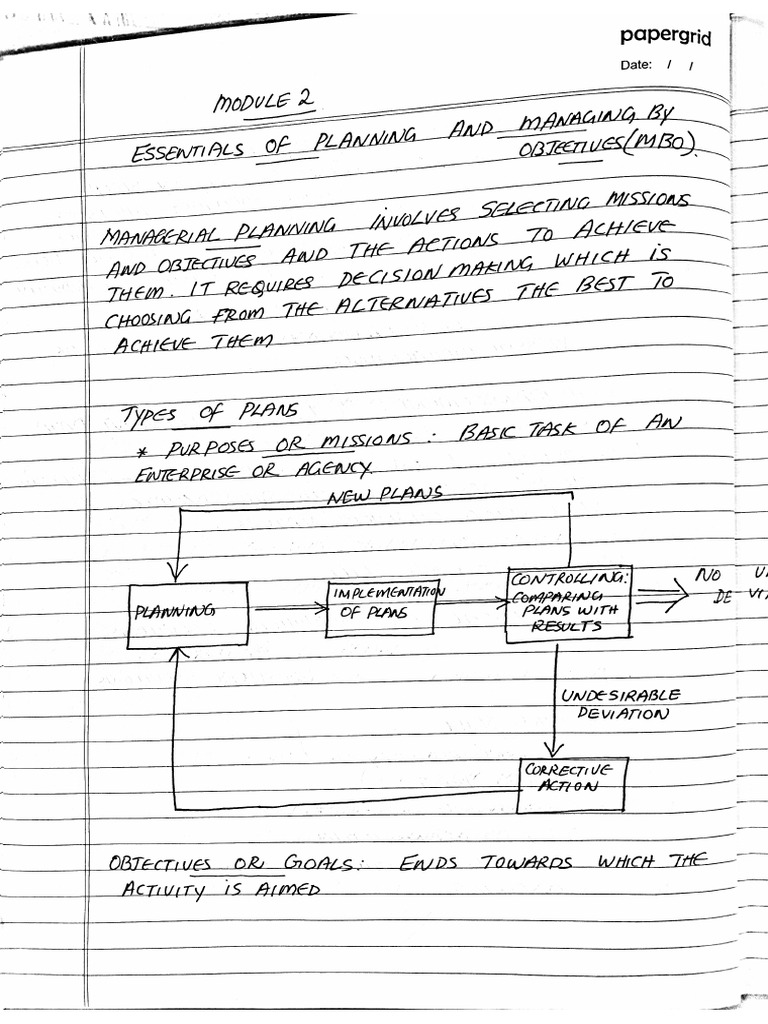 papergrid
Date: / /
MODULE 2
ESSENTIALS OF PLANNING AND MANAGING BY
OBJECTIVES (MBO).
MANAGERIAL PLANNING INVOLVES SELECTING MISSIONS
AND OBJECTIVES AND THE ACTIONS TO ACHIEVE
THEM. IT REQUIRES DECISION MAKING WHICH IS
CHOOSING FROM THE ALTERNATIVES THE BEST TO
ACHIEVE THEM
TYPES OF PLANS
* PURPOSES OR MISSIONS : BASIC TASK OF AN
ENTERPRISE OR AGENCY
NEW PLANS
PLANNING
IMPLEMENTATION
OF PLANS
CONTROLLING:
COMPARING
PLANS WITH
RESULTS
NO
UNDESIRABLE
DEVIATION
CORRECTIVE
ACTION
OBJECTIVES OR GOALS: ENDS TOWARDS WHICH THE
ACTIVITY IS AIMED